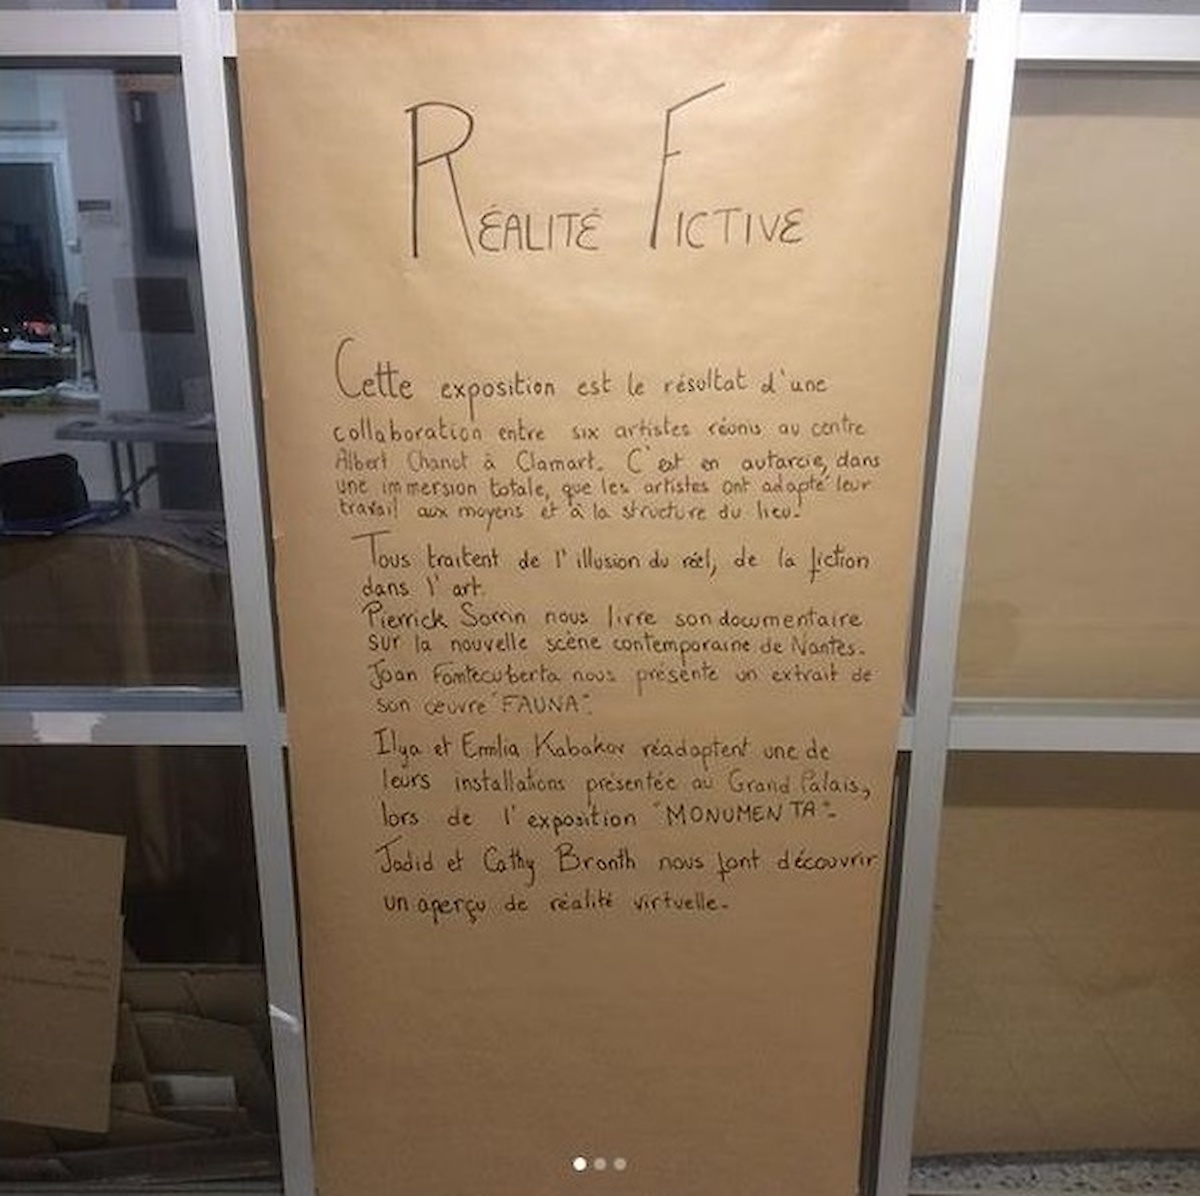 RÉALITÉ FICTIVE
Cette exposition est le résultat d'une
collaboration entre six artistes réunis au centre
Albert Chanot à Clamart. C'est en autarcie, dans
une immersion totale, que les artistes ont adapté leur
travail aux moyens et à la structure du lieu.
Tous traitent de l'illusion du réel, de la fiction
dans l'art.
Pierrick Sorrin nous livre son documentaire
sur la nouvelle scène contemporaine de Nantes.
Joan Fontecuberta nous présente un extrait de
son œuvre "FAUNA".
Ilya et Emilia Kabakov réadaptent une de
leurs installations présentée au Grand Palais,
lors de l'exposition "MONUMENTA".
Jadid et Cathy Bronth nous font découvrir
un aperçu de réalité virtuelle.